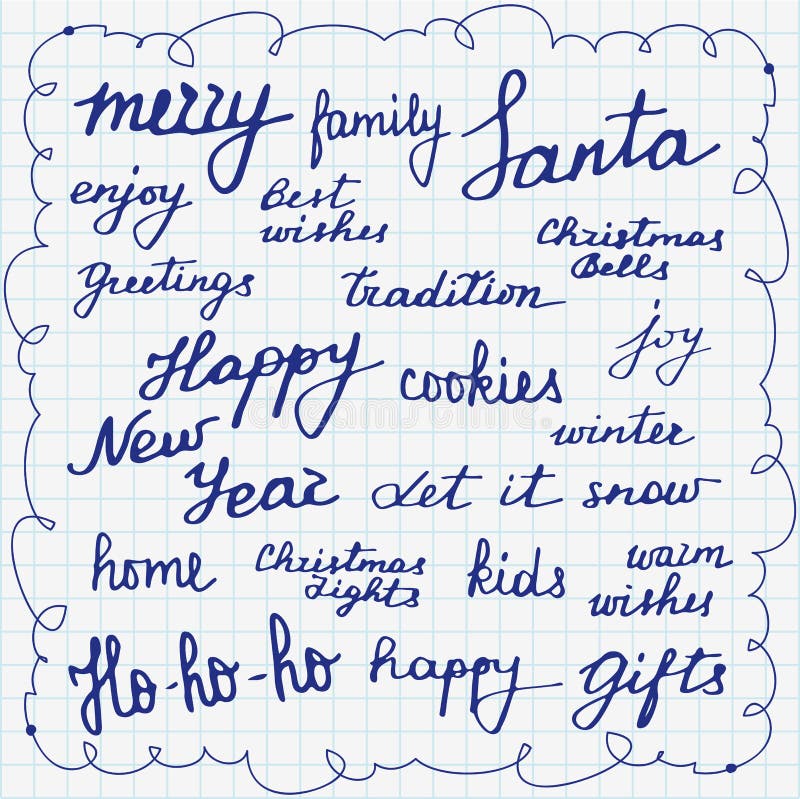 merry family Santa
enjoy Best wishes
Christmas Bells
Greetings tradition
joy
Happy cookies
New winter
Year Let it snow
home Christmas Lights kids warm wishes
Ho-ho-ho happy gifts